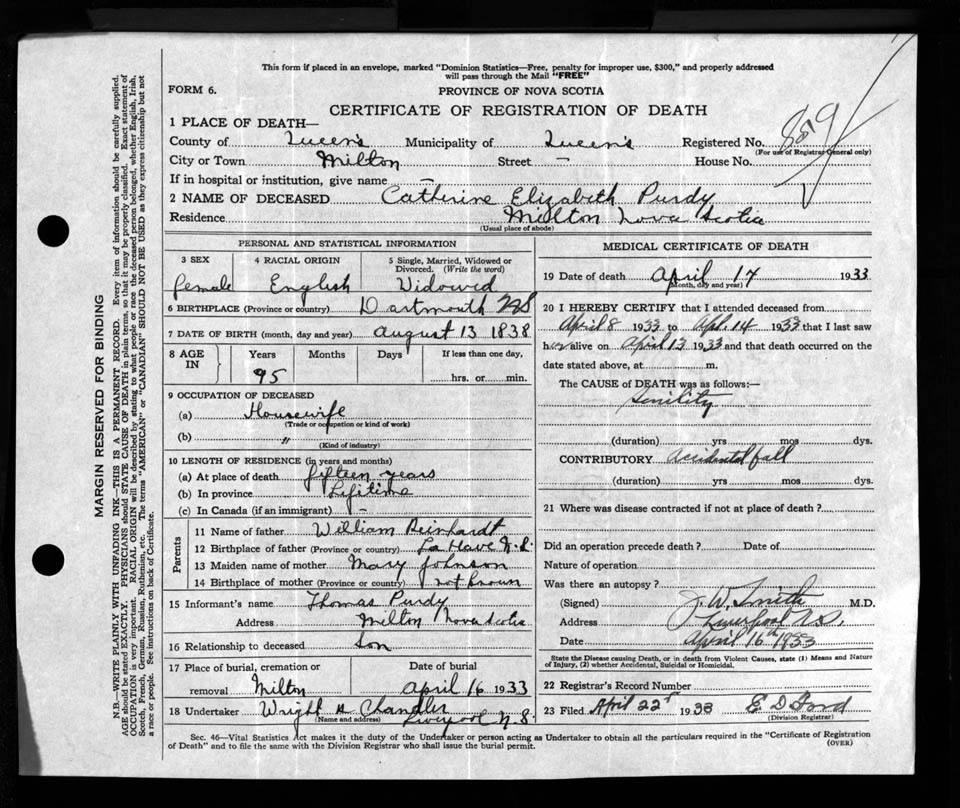 This form if placed in an envelope, marked "Dominion Statistics—Free, penalty for improper use, $300," and properly addressed
will pass through the Mail "FREE"
FORM 6.
PROVINCE OF NOVA SCOTIA
CERTIFICATE OF REGISTRATION OF DEATH
1 PLACE OF DEATH—
County of Queen's Municipality of Queen's Registered No. 859
(For use of Registrar General only)
City or Town Milton Street — House No.
If in hospital or institution, give name —
2 NAME OF DECEASED Catherine Elizabeth Purdy
Residence Milton Nova Scotia
(Usual place of abode)
PERSONAL AND STATISTICAL INFORMATION
3 SEX 4 RACIAL ORIGIN 5 Single, Married, Widowed or
Divorced. (Write the word)
female English Widowed
6 BIRTHPLACE (Province or country) Dartmouth NS
7 DATE OF BIRTH (month, day and year) August 13 1838
8 AGE IN Years Months Days If less than one day,
95 hrs. or min.
9 OCCUPATION OF DECEASED
(a) Housewife
(Trade or occupation or kind of work)
(b) "
(Kind of industry)
10 LENGTH OF RESIDENCE (in years and months)
(a) At place of death fifteen years
(b) In province Lifetime
(c) In Canada (if an immigrant) -
Parents
11 Name of father William Reinhardt
12 Birthplace of father (Province or country) La Have N.S.
13 Maiden name of mother Mary Johnson
14 Birthplace of mother (Province or country) not known
15 Informant's name Thomas Purdy
Address Milton Nova Scotia
16 Relationship to deceased Son
17 Place of burial, cremation or Date of burial
removal Milton April 16 1933
18 Undertaker Wright & Chandler
(Name and address) Liverpool N.S.
MEDICAL CERTIFICATE OF DEATH
19 Date of death April 14 1933
(Month, day and year)
20 I HEREBY CERTIFY that I attended deceased from
April 8 1933 to Apl. 14 1933 that I last saw
her alive on April 13 1933 and that death occurred on the
date stated above, at m.
The CAUSE of DEATH was as follows:—
Senility
(duration) yrs mos dys.
CONTRIBUTORY Accidental fall
(duration) yrs mos dys.
21 Where was disease contracted if not at place of death?
Did an operation precede death? Date of
Nature of operation
Was there an autopsy?
(Signed) J. W. Smith M.D.
Address Liverpool N.S.
Date April 16th 1933
State the Disease causing Death, or in death from Violent Causes, state (1) Means and Nature
of Injury, (2) whether Accidental, Suicidal or Homicidal.
22 Registrar's Record Number
23 Filed April 22 1933 E D Ford
(Division Registrar)
Sec. 46—Vital Statistics Act makes it the duty of the Undertaker or person acting as Undertaker to obtain all the particulars required in the "Certificate of Registration
of Death" and to file the same with the Division Registrar who shall issue the burial permit.
(OVER)
MARGIN RESERVED FOR BINDING
N.B.—WRITE PLAINLY WITH UNFADING INK—THIS IS A PERMANENT RECORD. Every item of information should be carefully supplied.
AGE should be stated EXACTLY. PHYSICIANS should STATE CAUSE OF DEATH in plain terms, so that it may be properly classified. Exact statement of
OCCUPATION is very important. RACIAL ORIGIN will be described by stating to what people or race the deceased person belonged, whether English, Irish,
Scotch, French, German, Russian, Ruthenian, etc. The terms "AMERICAN" or "CANADIAN" SHOULD NOT BE USED as they express citizenship but not
a race or people. See instructions on back of Certificate.